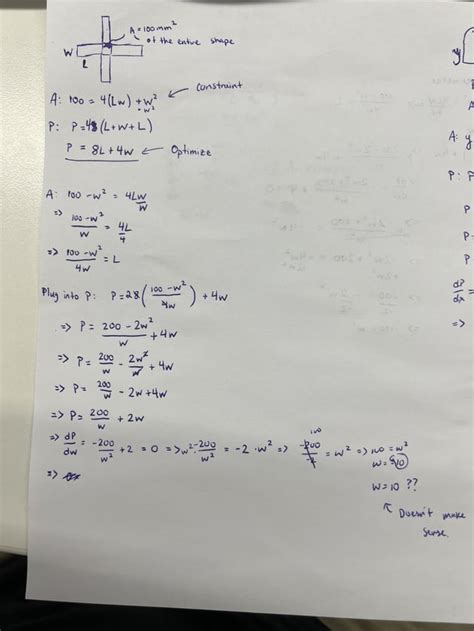 A = 100mm²
of the entire shape
W
L
A: 100 = 4(LW) + W² ← constraint
P: P = 4(L+W+L)
P = 8L + 4W ← Optimize
A: 100 - W² = 4LW
=> 100 - W² / W = 4L
=> 100 - W² / 4W = L
Plug into P: P = 28 (100 - W² / 4W) + 4W
=> P = 200 - 2W² / W + 4W
=> P = 200/W - 2W²/W + 4W
=> P = 200/W - 2W + 4W
=> P = 200/W + 2W
=> dP/dW = -200/W² + 2 = 0 => W² · -200/W² = -2 · W² => -200/-2 = W² => 100 = W²
100
W = 10
=>
W = 10 ??
↖ Doesn't make
sense.
y
A: y
P: P
P
P
P
dP/dx =
=>